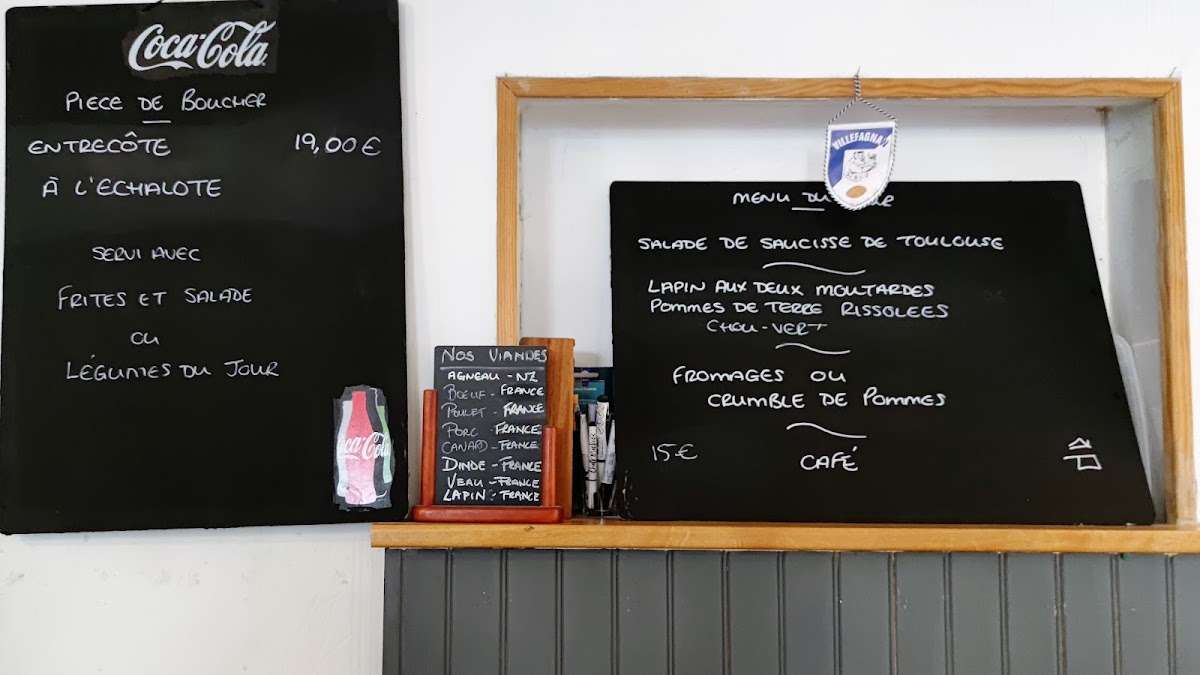 Coca-Cola
PIECE DE BOUCHER
ENTRECÔTE 19,00 €
À L'ECHALOTE
SERVI AVEC
FRITES ET SALADE
OU
LÉGUMES DU JOUR
Coca-Cola
NOS VIANDES
AGNEAU - NZ
BOEUF - FRANCE
POULET - FRANCE
PORC - FRANCE
CANARD - FRANCE
DINDE - FRANCE
VEAU - FRANCE
LAPIN : FRANCE
VILLEFAGNAN
MENU DU
SALADE DE SAUCISSE DE TOULOUSE
LAPIN AUX DEUX MOUTARDES
POMMES DE TERRE RISSOLEES
CHOU-VERT
FROMAGES OU
CRUMBLE DE POMMES
15 €
CAFÉ